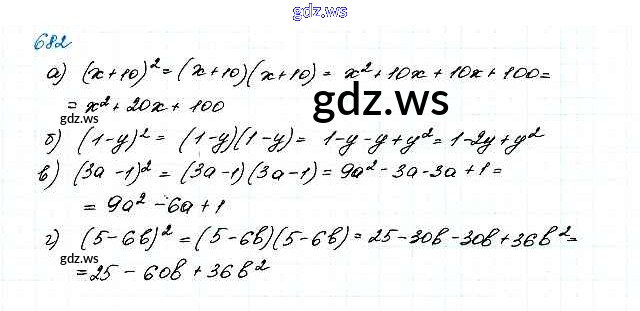 gdz.ws
682
а) (x+10)² = (x+10)(x+10) = x²+10x+10x+100=
= x²+20x+100
gdz.ws
gdz.ws
б) (1-y)² = (1-y)(1-y) = 1-y-y+y² = 1-2y+y²
в) (3a-1)² = (3a-1)(3a-1) = 9a²-3a-3a+1 =
= 9a²-6a+1
г) (5-6b)² = (5-6b)(5-6b) = 25-30b-30b+36b² =
gdz.ws
= 25-60b+36b²
gdz.ws